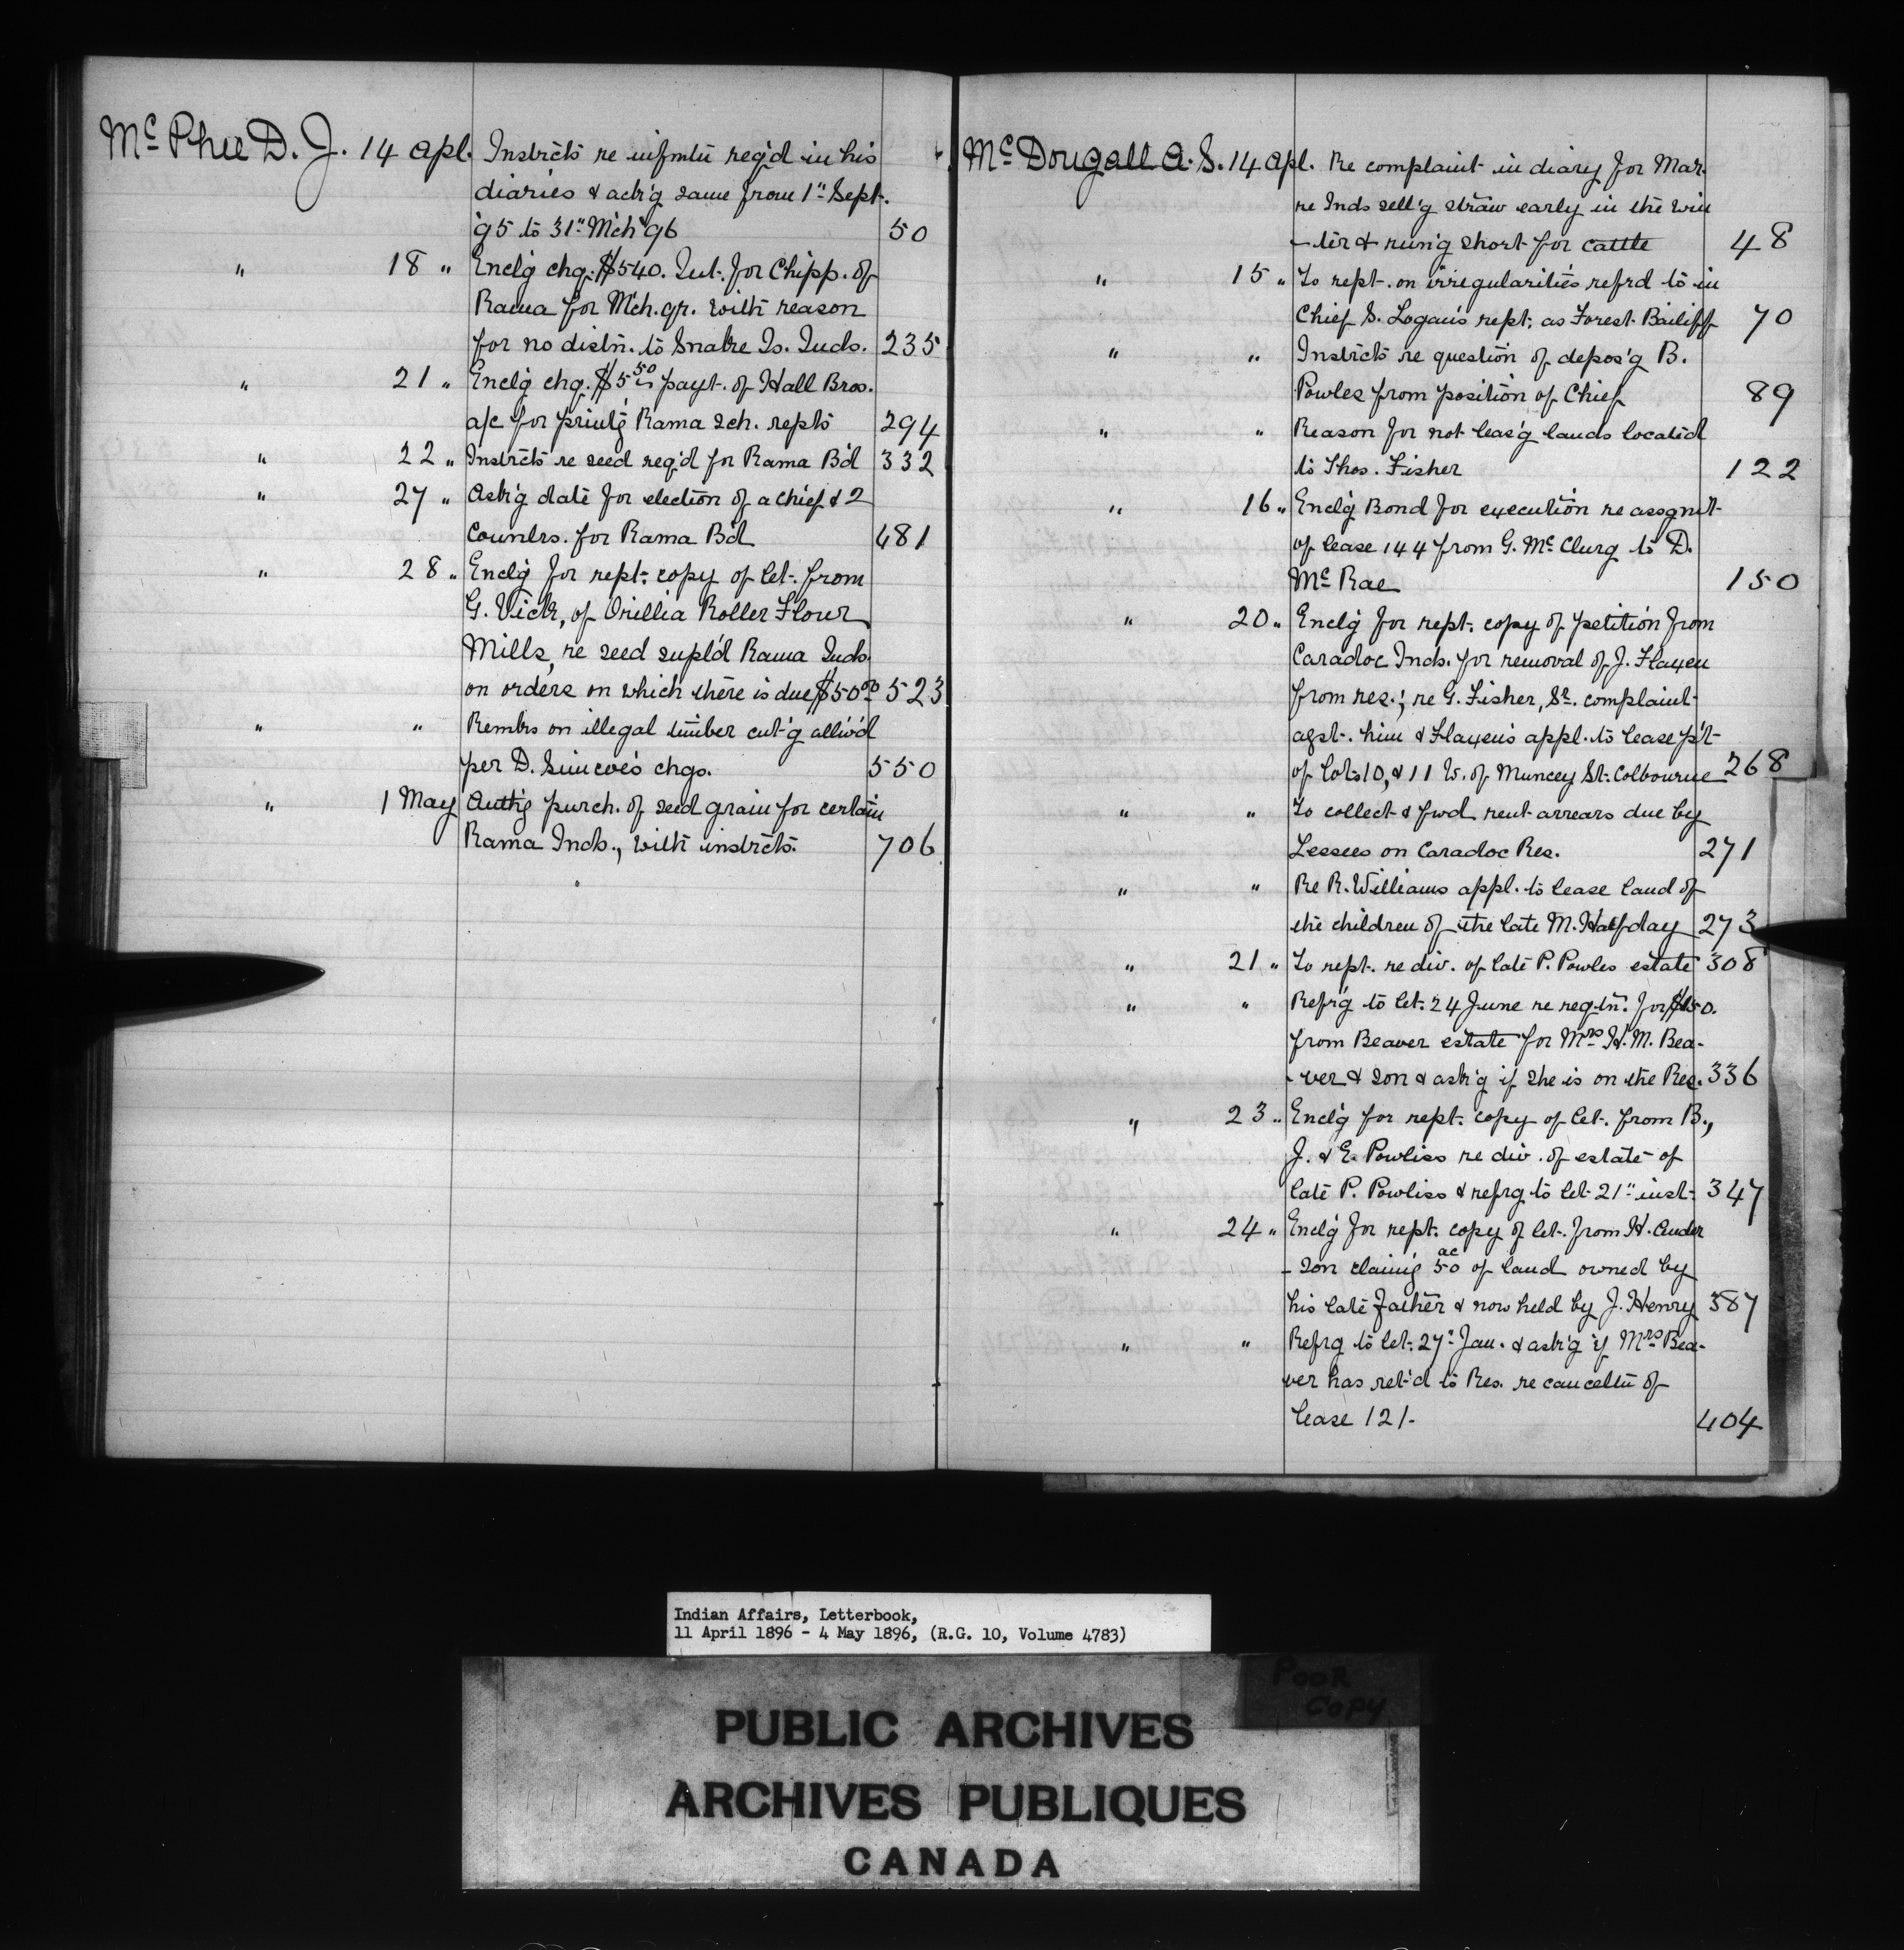 McPhee D. J. 14 Apl. Instrcts re infmtn req'd in his
diaries & ask'g same from 1" Sept.
'95 to 31" Mch '96 50
" 18 " Enclg chq. $540. Int. for Chipp. of
Rama for Mch. qr. with reason
for no distn. to Snake Is. Inds. 235
" 21 " Enclg chq. $5 50 in payt. of Hall Bros.
a/c for print'g Rama sch. repts 294
" 22 " Instrcts re seed req'd for Rama B'd 332
" 27 " Ask'g date for election of a chief & 2
Counlrs. for Rama Bd 481
" 28 " Enclg for rept. copy of let. from
G. Vick, of Orillia Roller Flour
Mills, re seed supl'd Rama Inds.
on orders on which there is due $50 00 523
" " Remks on illegal timber cut'g all'w'd
per D. Simcoe's chgs. 550
" 1 May Authg purch. of seed grain for certain
Rama Inds., with instrcts. 706
McDougall A. S. 14 Apl. Re complaint in diary for Mar.
re Inds sell'g straw early in the win
-ter & run'g short for cattle 48
" 15 " To rept. on irregularities refrd to in
Chief S. Logan's rept. as Forest Bailiff 70
" " Instrcts re question of depos'g B.
Powles from position of Chief 89
" " Reason for not leas'g lands located
to Thos. Fisher 122
" 16 " Enclg Bond for execution re assgnmt
of lease 144 from G. McClurg to D.
McRae 150
" 20 " Enclg for rept. copy of petition from
Caradoc Inds. for removal of J. Flaxen
from res.; re G. Fisher, Sr. complaint
agst. him & Flaxen's appl. to lease p't
of lots 10, & 11 W. of Muncey St. Colbourne 268
" " To collect & fwd rent arrears due by
Lessees on Caradoc Res. 271
" " Re R. Williams appl. to lease land of
the children of the late M. Halfday 273
" 21 " To rept. re div. of late P. Powles estate 308
" " Refr'g to let. 24 June re reqtn. for $150.
from Beaver estate for Mrs H. M. Bea-
-ver & son & ask'g if she is on the Res. 336
" 23 " Encl'g for rept. copy of let. from B.,
J. & E. Powliss re div. of estate of
late P. Powliss & refrg to let 21" inst. 347
" 24 " Enclg for rept. copy of let. from H. Ander
-son claim'g 50 ac of land owned by
his late father & now held by J. Henry 387
" " Refrg to let. 27" Jan. & ask'g if Mrs Bea-
ver has ret'd to Res. re cancelltn of
lease 121. 404
Indian Affairs, Letterbook,
11 April 1896 - 4 May 1896, (R.G. 10, Volume 4783)
POOR
COPY
PUBLIC ARCHIVES
ARCHIVES PUBLIQUES
CANADA